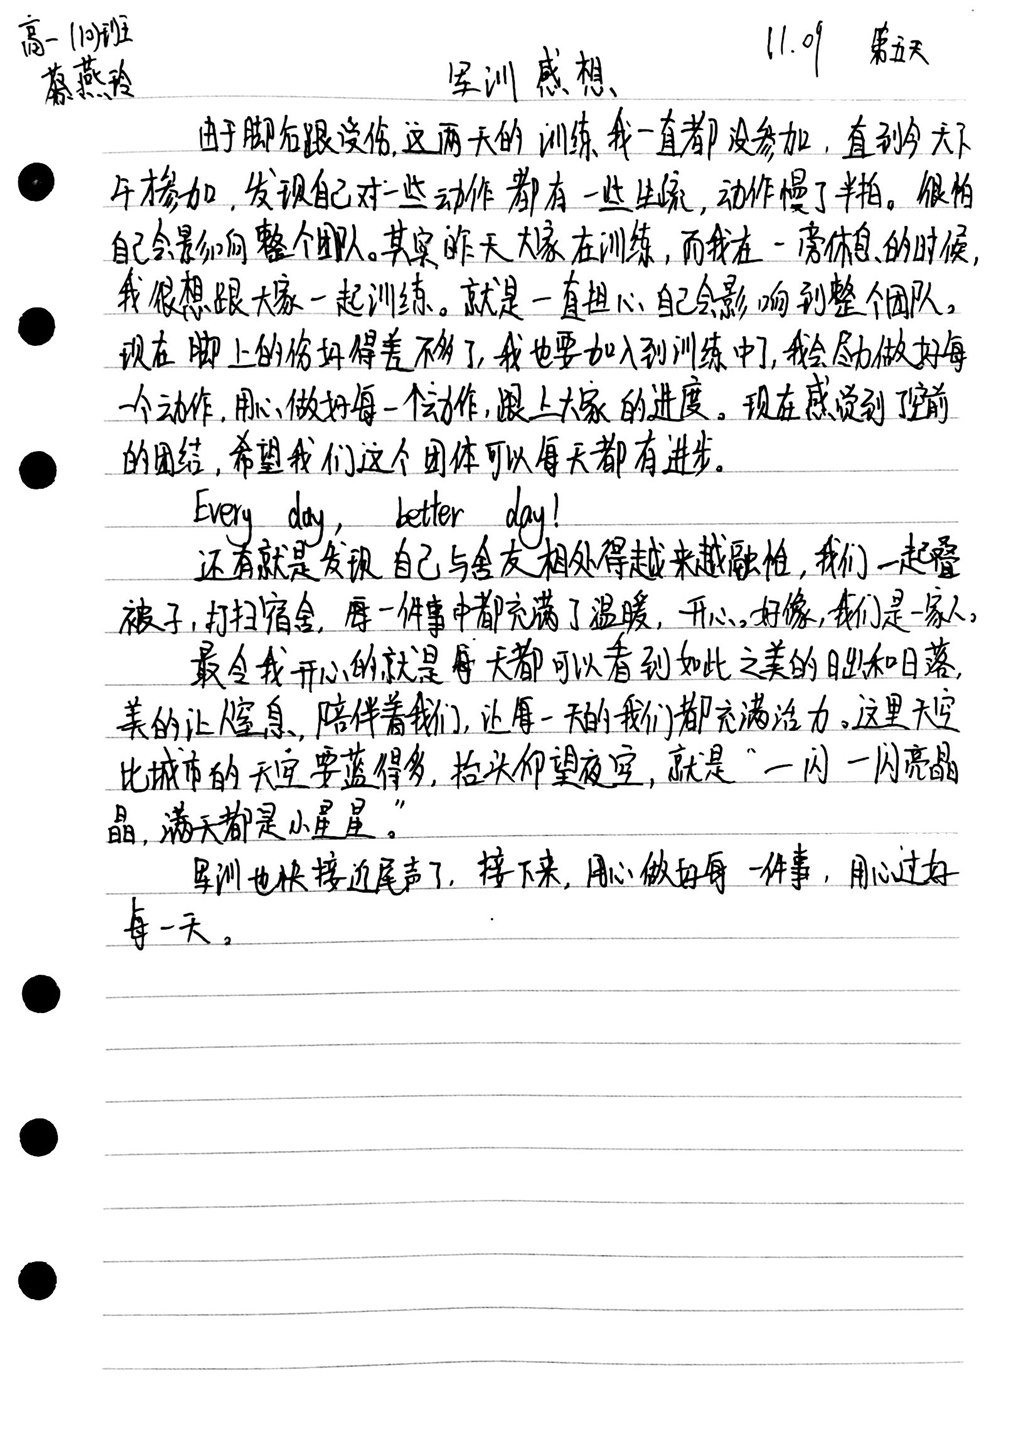 高一(10)班
11.09 第五天
蔡燕玲
军训感想
由于脚后跟受伤,这两天的训练我一直都没参加,直到今天下
午才参加,发现自己对一些动作都有一些生疏,动作慢了半拍。很怕
自己会影响整个团队。其实昨天大家在训练,而我在一旁休息的时候,
我很想跟大家一起训练。就是一直担心自己会影响到整个团队。
现在脚上的伤好得差不多了,我也要加入到训练中了,我会尽力做好每
一个动作,用心做好每一个动作,跟上大家的进度。现在感觉到了空前
的团结,希望我们这个团体可以每天都有进步。
Every day, better day!
还有就是发现自己与舍友相处得越来越融恰,我们一起叠
被子,打扫宿舍,每一件事中都充满了温暖,开心。好像,我们是一家人。
最令我开心的就是每天都可以看到如此之美的日出和日落,
美的让人窒息,陪伴着我们,让每一天的我们都充满活力。这里天空
比城市的天空要蓝得多,抬头仰望夜空,就是“一闪一闪亮晶
晶,满天都是小星星”。
军训也快接近尾声了,接下来,用心做好每一件事,用心过好
每一天。